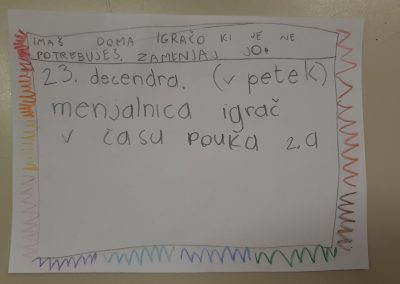 IMAŠ DOMA IGRAČO KI JE NE
POTREBUJEŠ. ZAMENJAJ JO.
23. decendra. (v petek)
menjalnica igrač
v času pouka 2.a